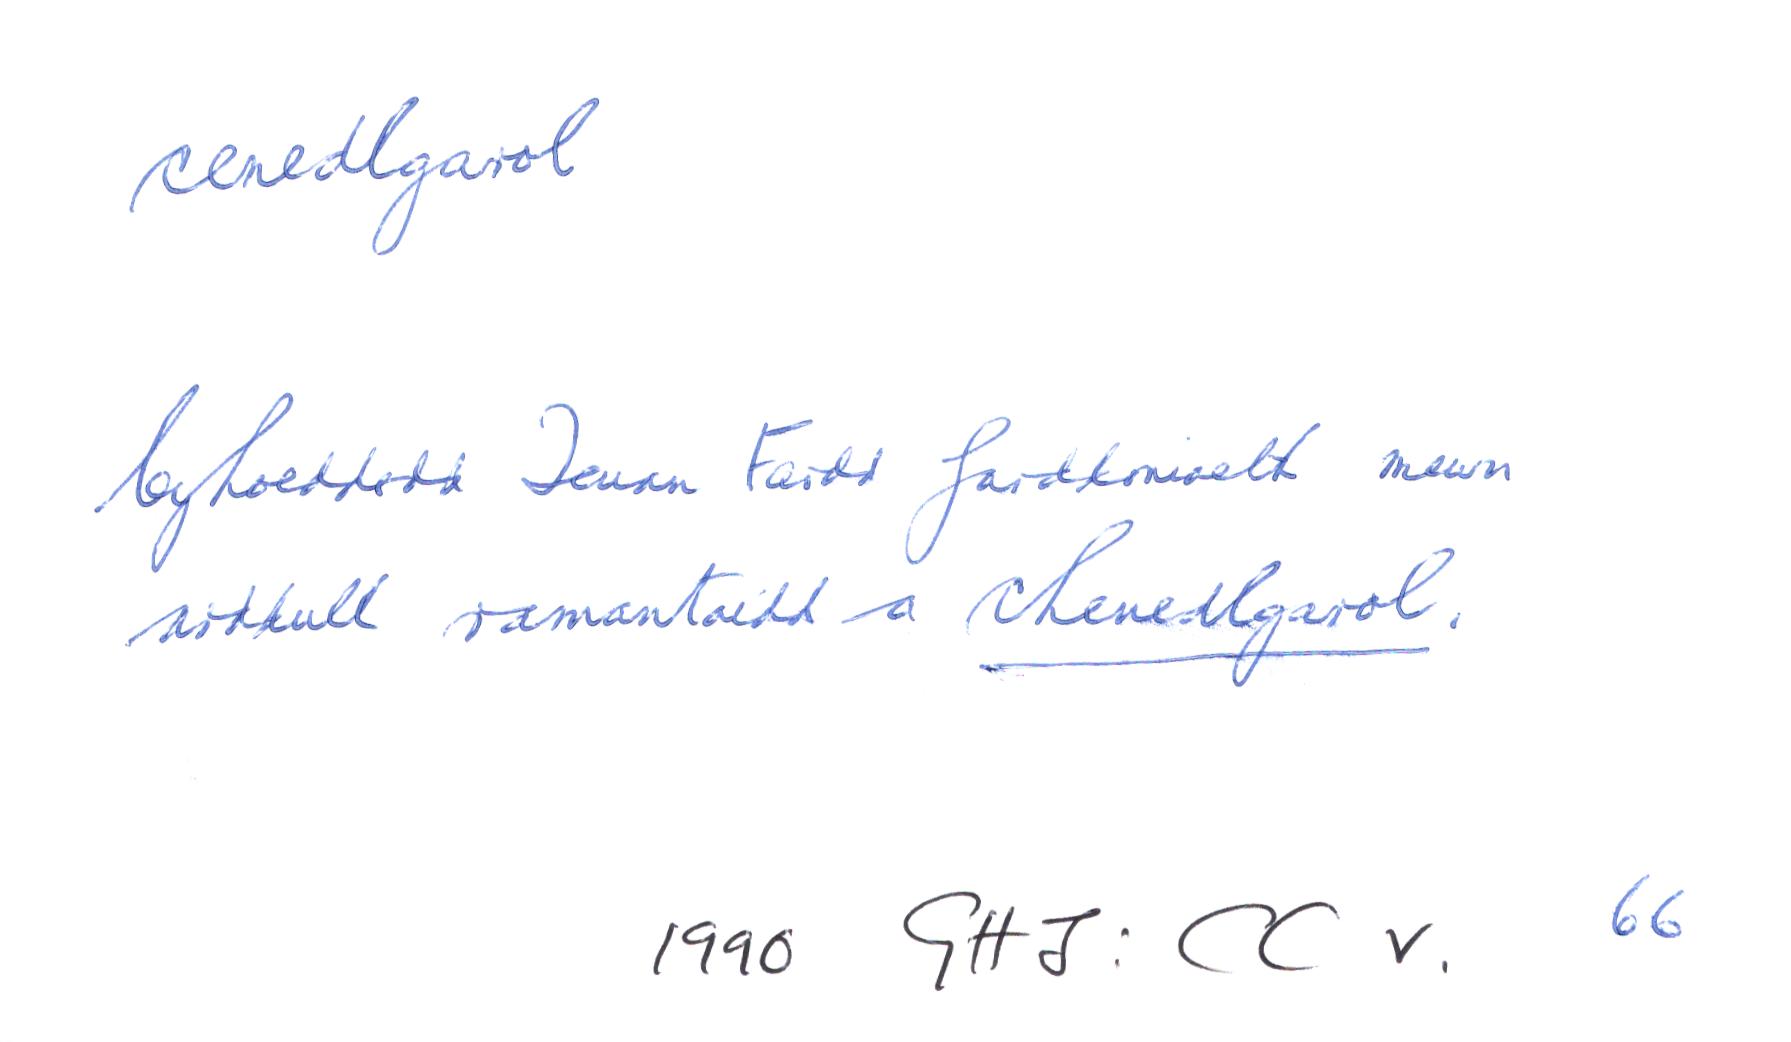 cenedlgarol
Cyhoeddodd Ieuan Fardd farddoniaeth mewn
arddull ramantaidd a chenedlgarol.
1990 GHJ: CC v. 66